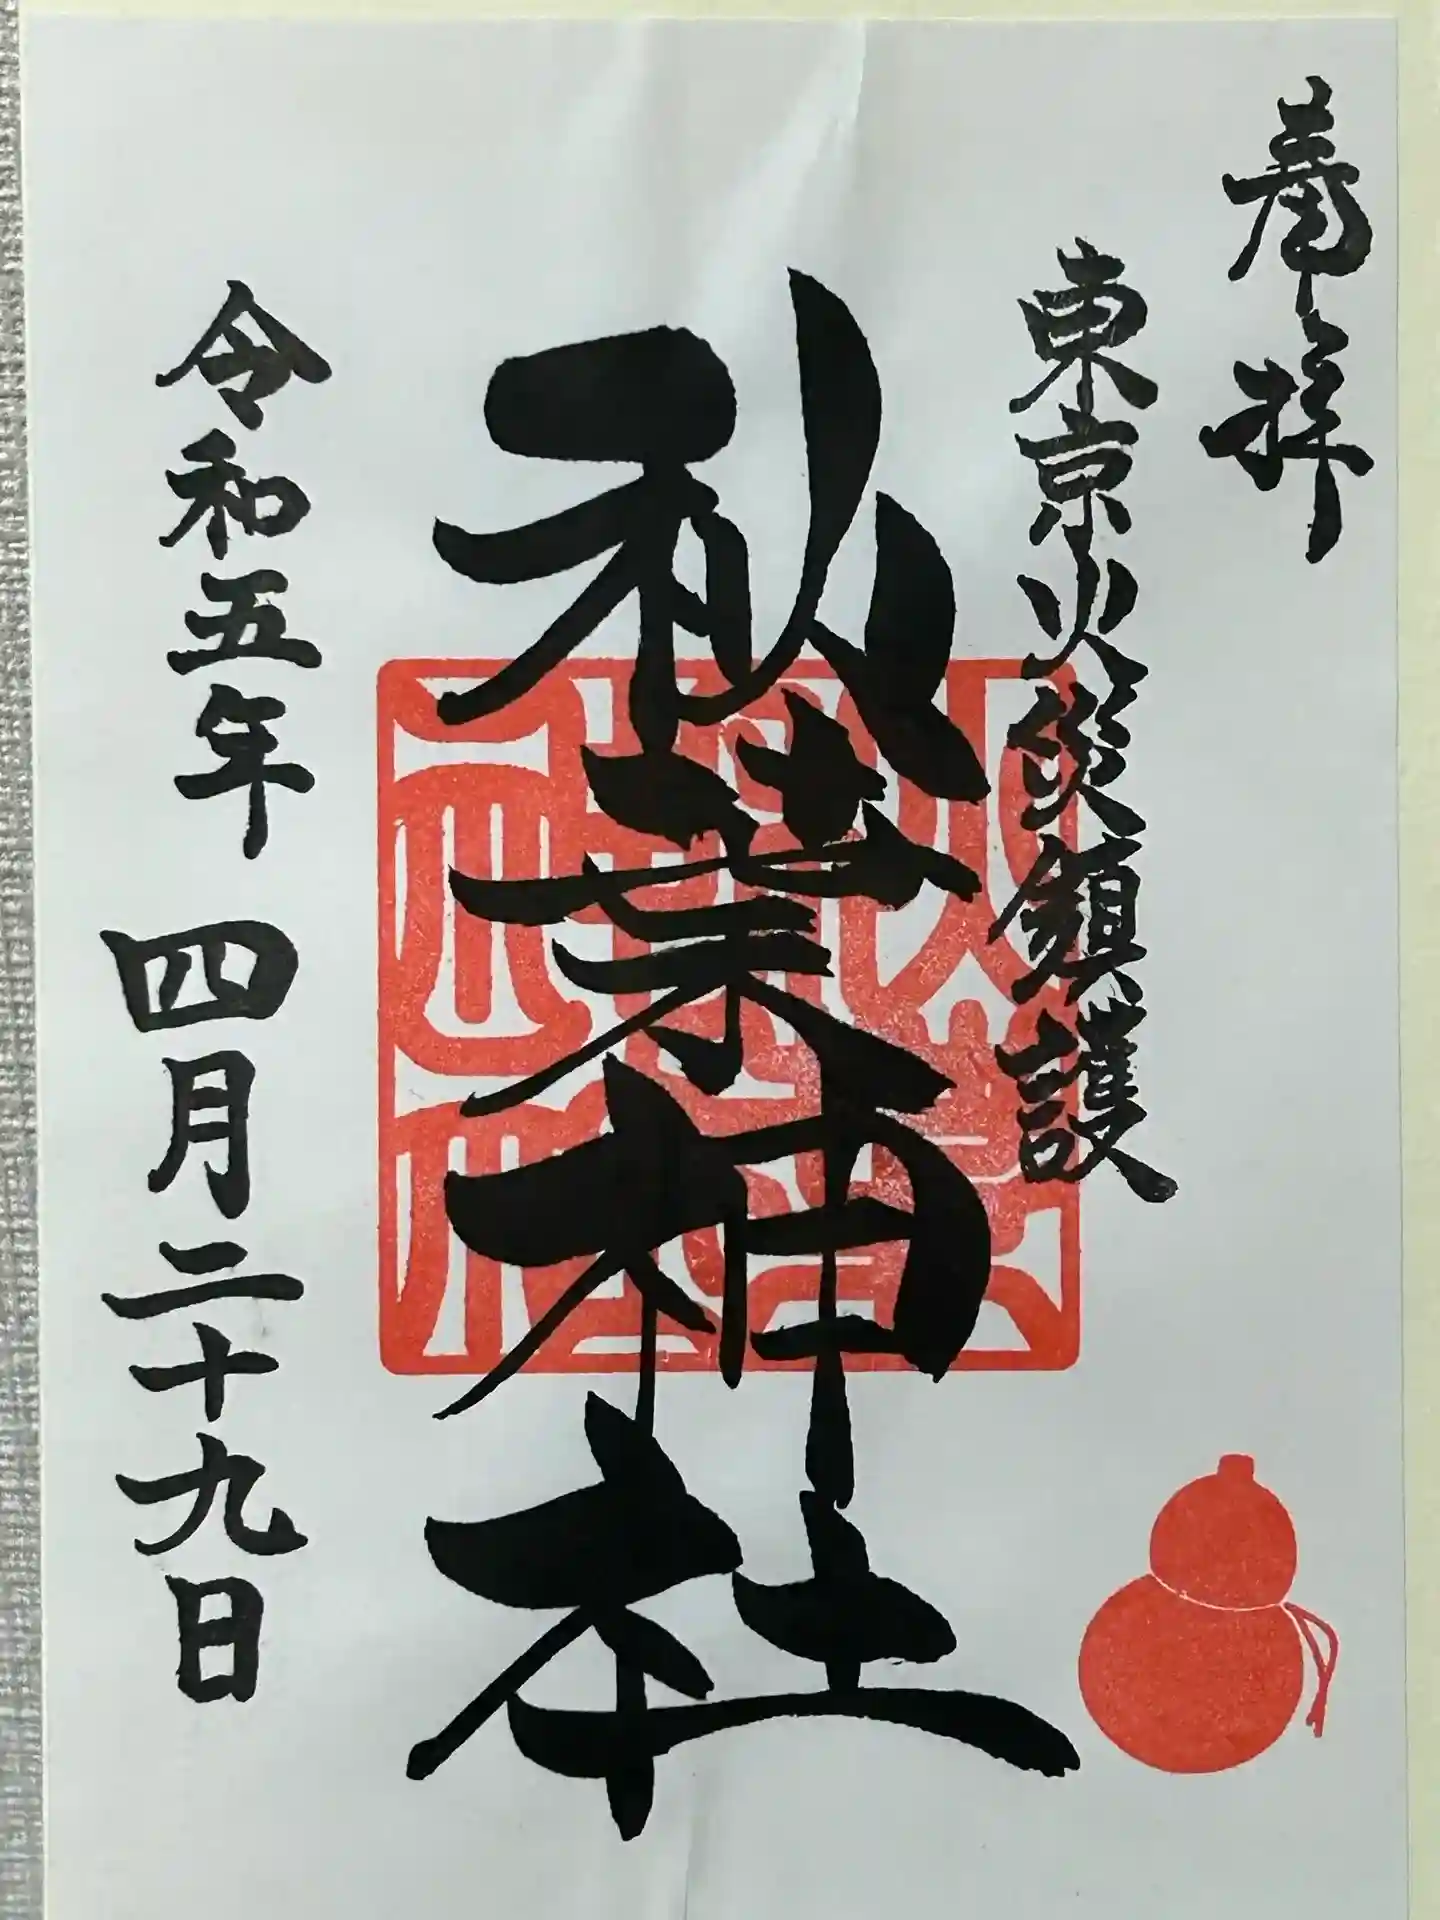 奉拝
東京火災鎮護
秋葉神社
令和五年 四月二十九日